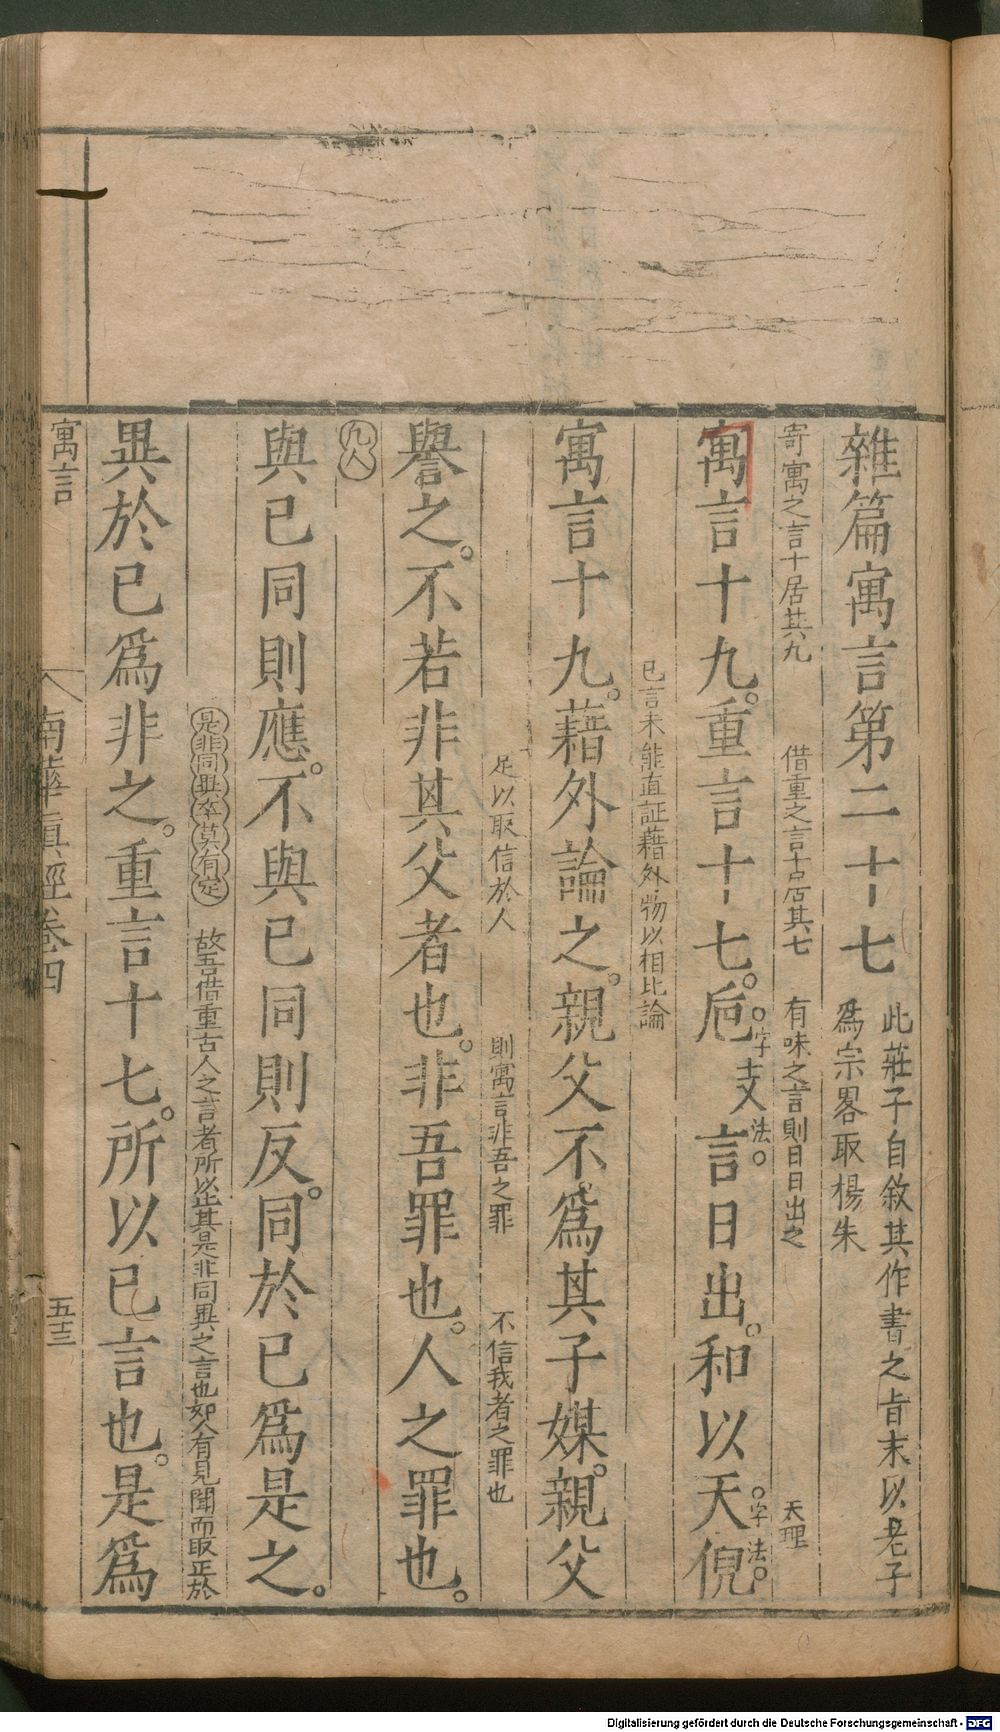 雜篇寓言第二十七
此莊子自敘其作書之旨末以老子
爲宗畧取楊朱
寄寓之言十居其九　借重之言十居其七　有味之言則日日出之　天理
寓言十九。重言十七。巵言日出。和以天倪
支
字法。
字法。
已言未能直証藉外物以相比論
寓言十九。藉外論之。親父不爲其子媒。親父
足以取信於人　則寓言非吾之罪　不信我者之罪也
譽之。不若非其父者也。非吾罪也。人之罪也。
凡人
與已同則應。不與已同則反。同於已爲是之。
是非同異卒莫有定　故吾借重古人之言者所以止其是非同異之言也如人有見聞而取正於
異於已爲非之。重言十七。所以已言也。是爲
寓言
南華真經卷四
五十三
Digitalisierung gefördert durch die Deutsche Forschungsgemeinschaft - DFG